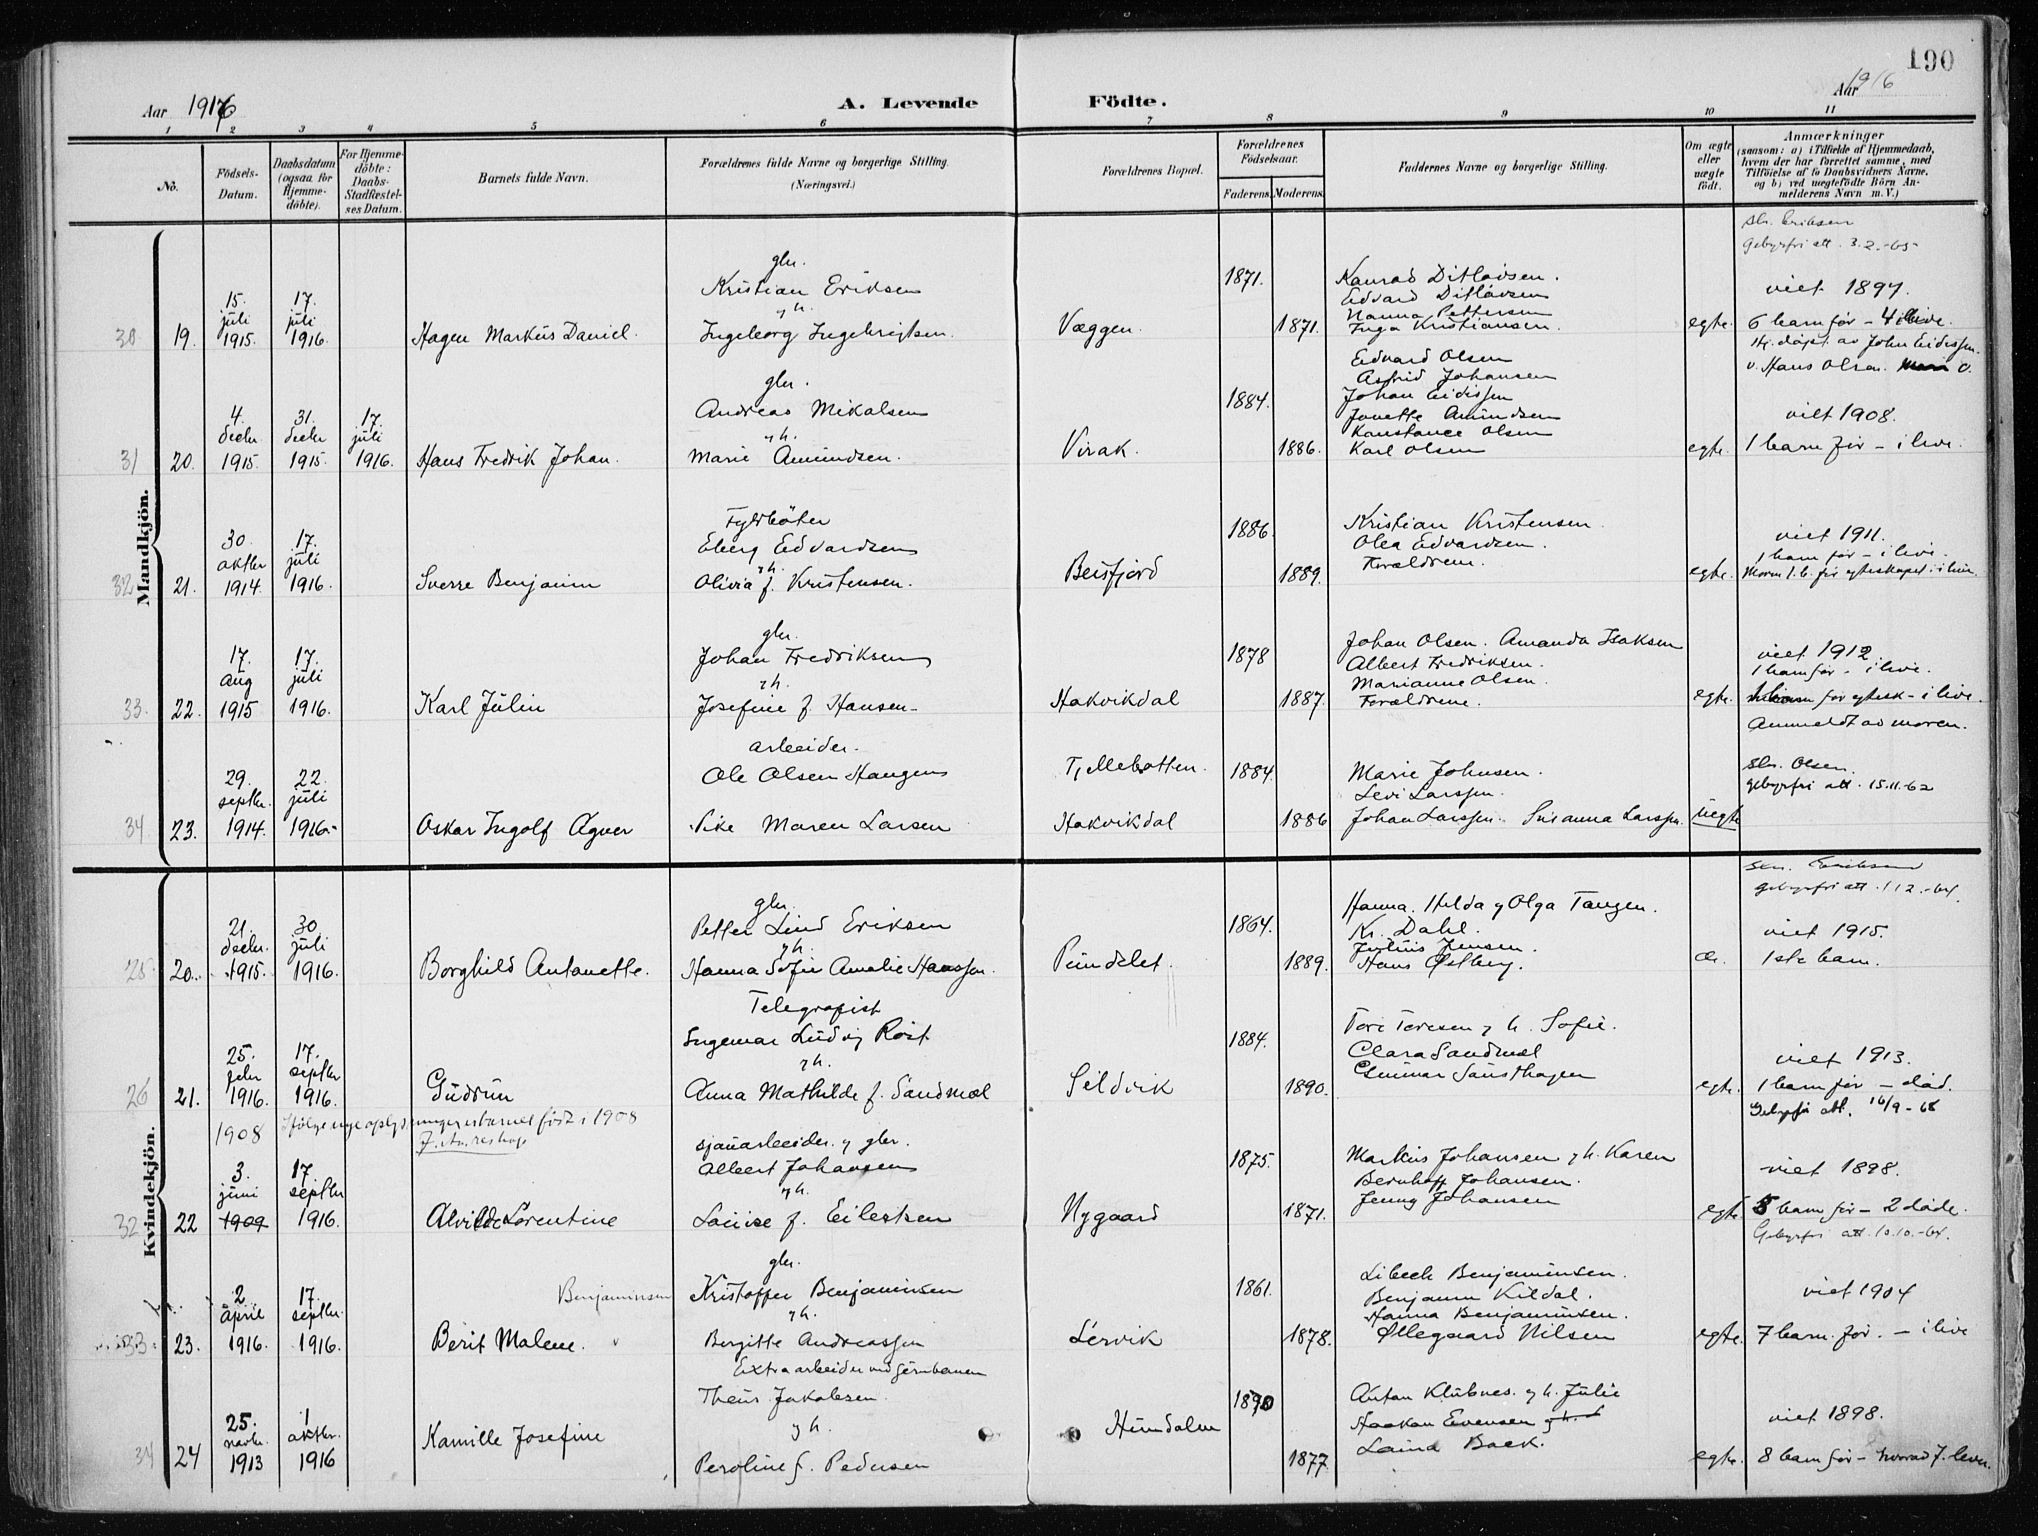 190
Aar 1916
A. Levende Födte.
Aar 1916
1 2 3 4 5 6 7 8 9 10 11
No.
Födsels-Datum.
Daabsdatum (ogsaa for Hjemme-döbte).
For Hjemme-döbte: Daabs-Stadfæstel-ses Datum.
Barnets fulde Navn.
Forældrenes fulde Navne og borgerlige Stilling. (Næringsvei.)
Forældrenes Bopæl.
Forældrenes Födselsaar.
Faderens. Moderens.
Faddernes Navne og borgerlige Stilling.
Om ægte eller uægte födt.
Anmærkninger
(saasom: a) i Tilfælde af Hjemmedaab,
hvem der har forrettet samme, med
Tilföielse af to Daabsvidners Navne,
og b) ved uægtefödte Börn An-
melderens Navn m. V.)
Mandkjön.
30 19. 15. juli 1915. 17. juli 1916. Hagen Markus Daniel.
gbr.
Kristian Eriksen
og h.
Ingeborg Ingebrigtsen.
Væggen. 1871. 1871.
Konrad Ditlovsen.
Edvard Ditlovsen
Nanna Pettersen
Inga Kristiansen.
egte.
Gebyrfri att. 3.2.-65
viet 1897.
6 barn før - 4 i live.
Hj. døpt av Johan Eidissen.
v. Hans Olsen.
31 20. 4. decbr 1915. 31. decbr 1915. 17. juli 1916. Hans Fredrik Johan.
gbr.
Andreas Mikalsen
og h.
Marie Amundsen.
Virak. 1884. 1886.
Edvard Olsen
Astrid Johansen
Johan Eidissen
Jonette Amundsen
Konstance Olsen
Karl Olsen
egte.
viet 1908.
1 barn før - i live.
32 21. 30. oktbr 1914. 17. juli 1916. Sverre Benjamin
Eberg Edvardsen
og h.
Olivia f. Kristensen.
Beisfjord 1886. 1889.
Kristian Kristensen.
Olea Edvardsen.
Forældrene.
egte.
viet 1911.
1 barn før - i live.
33. 22. 17. aug 1915 17. juli 1916. Karl Julin
gbr.
Johan Fredriksen
og h.
Josefine f. Hansen
Hakvikdal 1878 1887.
Johan Olsen. Amanda Isaksen
Albert Fredriksen.
Marianne Olsen.
Forældrene.
egte.
viet 1912.
1 barn før - i live.
før egtesk - i live.
Anmeldt av moren.
34. 23. 29. septbr. 1914. 22. juli 1916. Oskar Ingolf Agner
arbeider.
Ole Olsen Haugen
Pike Maren Larsen
Tjellebotten. Hakvikdal 1884. 1886
Marie Johnsen.
Levi Larssen.
Johan Larssen. Susanna Larssen.
uegte
Olsen.
gebyrfri att. 15.11.62
Kvindekjön.
25 20. 21. decbr. 1915. 30. juli 1916. Borghild Antonette.
gbr.
Petter Lind Eriksen
og h.
Hanna Sofie Amalie Hanssen.
Pundslet. 1864. 1889.
Hanna. Helda og Olga Tangen.
Kr. Dahl.
Julius Jensen.
Hans Østberg.
æ.
Eriksen
gebyrfri att.
viet 1915.
1ste barn.
26 21. 25. febr 1916. 17. septbr 1916. Gudrun
Telegrafist
Ingemar Ludvig Rost
og h.
Anna Mathilde f. Sandmæl
Sildvik 1884. 1890.
Tore Toresen og h. Sofie.
Clara Sandmæl
Gunnar Sausthagen
egte.
viet 1913.
1 barn før - død.
Gebyrfri att. 16/9-68
1908 Ifølge nye oplysninger er barnet født i 1908
32 22 3. juni 1909 17. septbr 1916. Alvilde Lorentine
sjauarbeider. og gbr.
Albert Johansen
og h.
Louise f. Eilertsen
Nygaard 1875. 1871.
Markus Johansen og h. Karen
Bernhoff Johansen.
Jenny Johansen
egte.
viet 1898.
5 barn før - 2 døde.
Gebyrfri att. 10.10.-64.
33 23. 2 april 1916. 17. septbr. 1916. Berit Malene.
Benjaminsen
gbr.
Kristoffer Benjaminsen
og h.
Bergitte Andreassen
Lervik 1861. 1878.
Libech Benjaminsen.
Benjamin Kildal.
Hanna Benjaminsen.
Øllegaard Nilsen
egte.
viet 1904
7 barn. før. - i live
34 24 25. novbr. 1913 1 oktbr. 1916 Kamille Josefine
Extraarbeider ved jernbanen
Theus Jakobsen.
og h.
Peroline f. Pedersen
Hundalen 1870 1877
Anton Klubnes. og h. Julie
Haakon Evensen og h.
Laina Baek.
egte.
viet 1898.
8 barn før - hvorav 7. lever.